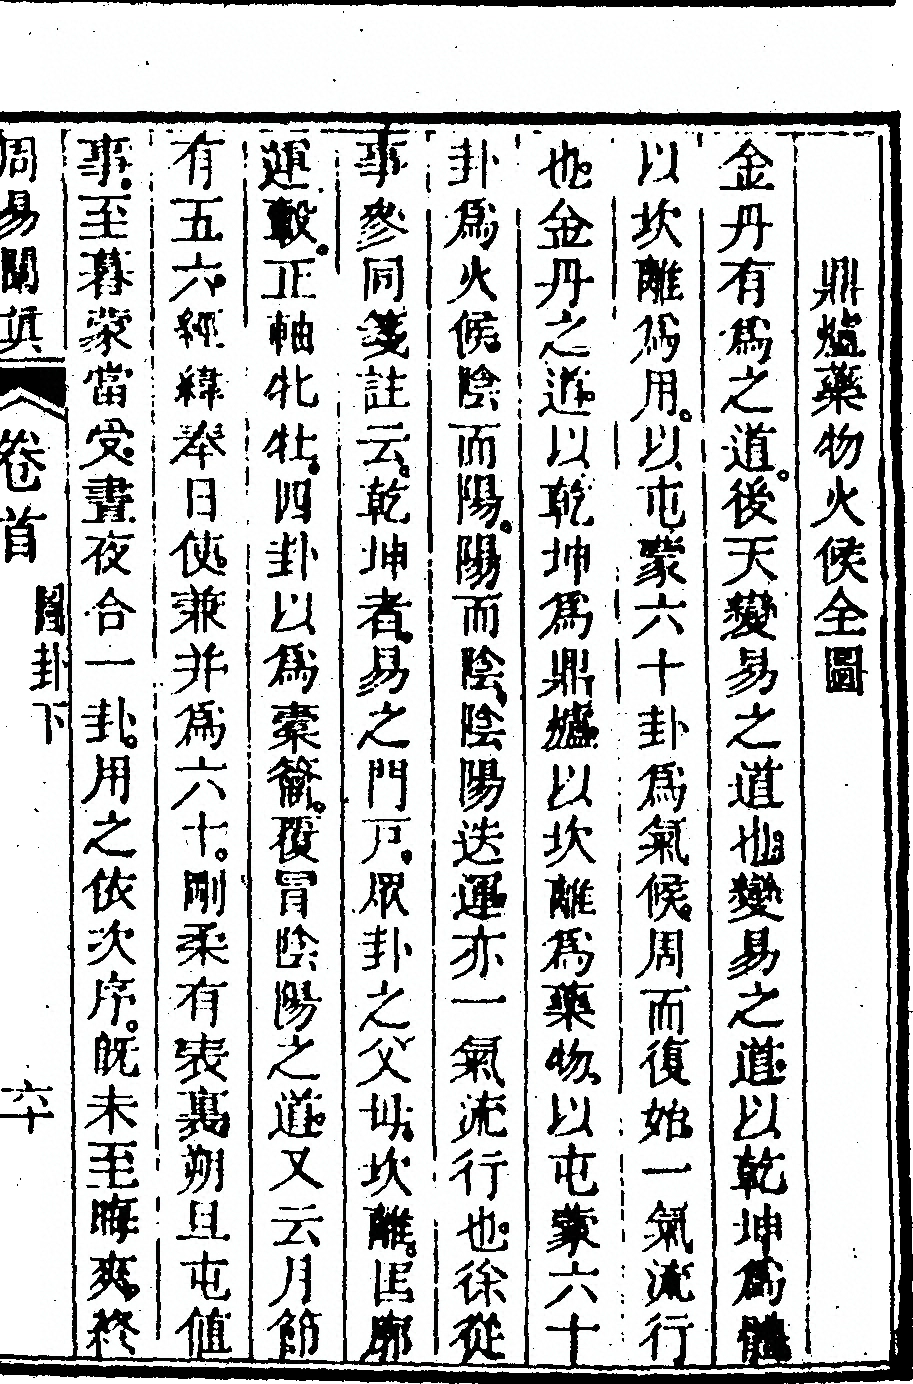 鼎爐藥物火候全圖
金丹有爲之道。後天變易之道也。變易之道。以乾坤爲體。
以坎離爲用。以屯蒙六十卦爲氣候。周而復始。一氣流行
也。金丹之道。以乾坤爲鼎爐。以坎離爲藥物。以屯蒙六十
卦爲火候。陰而陽。陽而陰。陰陽迭運。亦一氣流行也。徐從
事參同箋註云。乾坤者。易之門戸。眾卦之父母。坎離。匡廓
運轂。正軸牝牡。四卦以爲橐籥。覆冒陰陽之道。又云月節
有五六。經緯奉日使。兼并爲六十。剛柔有表裏。朔旦屯值
事。至暮蒙當受。晝夜合一卦。用之依次序。旣未至晦爽。終
周易闡眞
卷首
圖卦下
六十